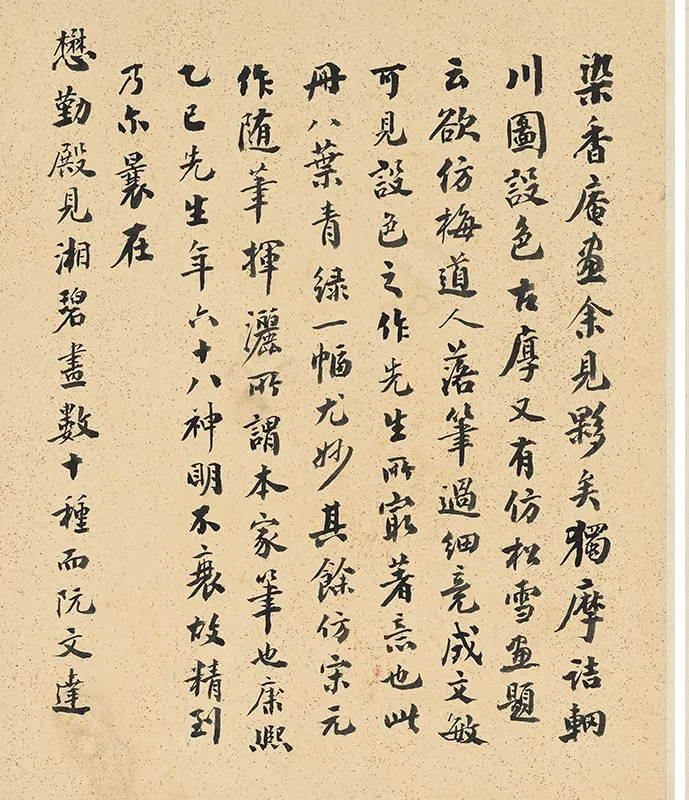 染香庵画余見夥矣獨摩詰輞
川圖設色古厚又有仿松雪画題
云欲仿梅道人落筆過細竟成文敏
可見設色之作先生所寂著意也此
冊八葉青緑一幅尤妙其餘仿宋元
作随筆揮灑所謂本家筆也康熙
乙巳先生年六十八神明不衰故精到
乃尔曩在
懋勤殿見湘碧畫數十種而阮文達